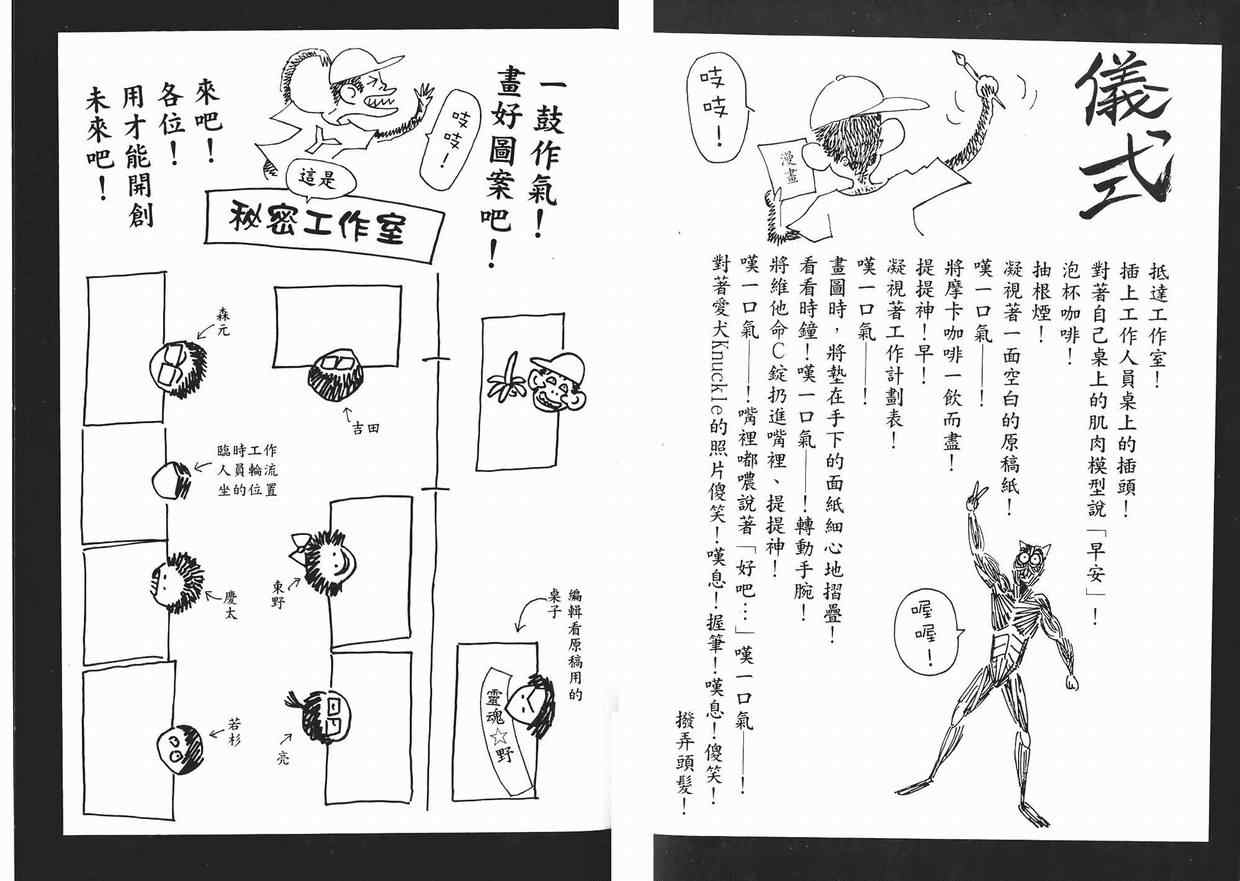 儀式
吱吱！
漫畫
抵達工作室！
插上工作人員桌上的插頭！
對著自己桌上的肌肉模型說「早安」！
泡杯咖啡！
抽根煙！
凝視著一面空白的原稿紙！
嘆一口氣——！
將摩卡咖啡一飲而盡！
提提神！早！
凝視著工作計劃表！
嘆一口氣——！
畫圖時，將墊在手下的面紙細心地摺疊！
看看時鐘！嘆一口氣——！轉動手腕！
將維他命C錠扔進嘴裡、提提神！
嘆一口氣——！嘴裡嘟噥說著「好吧…」嘆一口氣——！
對著愛犬Knuckle的照片傻笑！嘆息！握筆！嘆息！傻笑！
撥弄頭髮！
喔喔！
一鼓作氣！
畫好圖案吧！
吱吱！
這是
秘密工作室
來吧！
各位！
用才能開創
未來吧！
森元
吉田
臨時工作
人員輪流
坐的位置
慶太
東野
若杉
亮
編輯看原稿用的
桌子
靈魂☆野